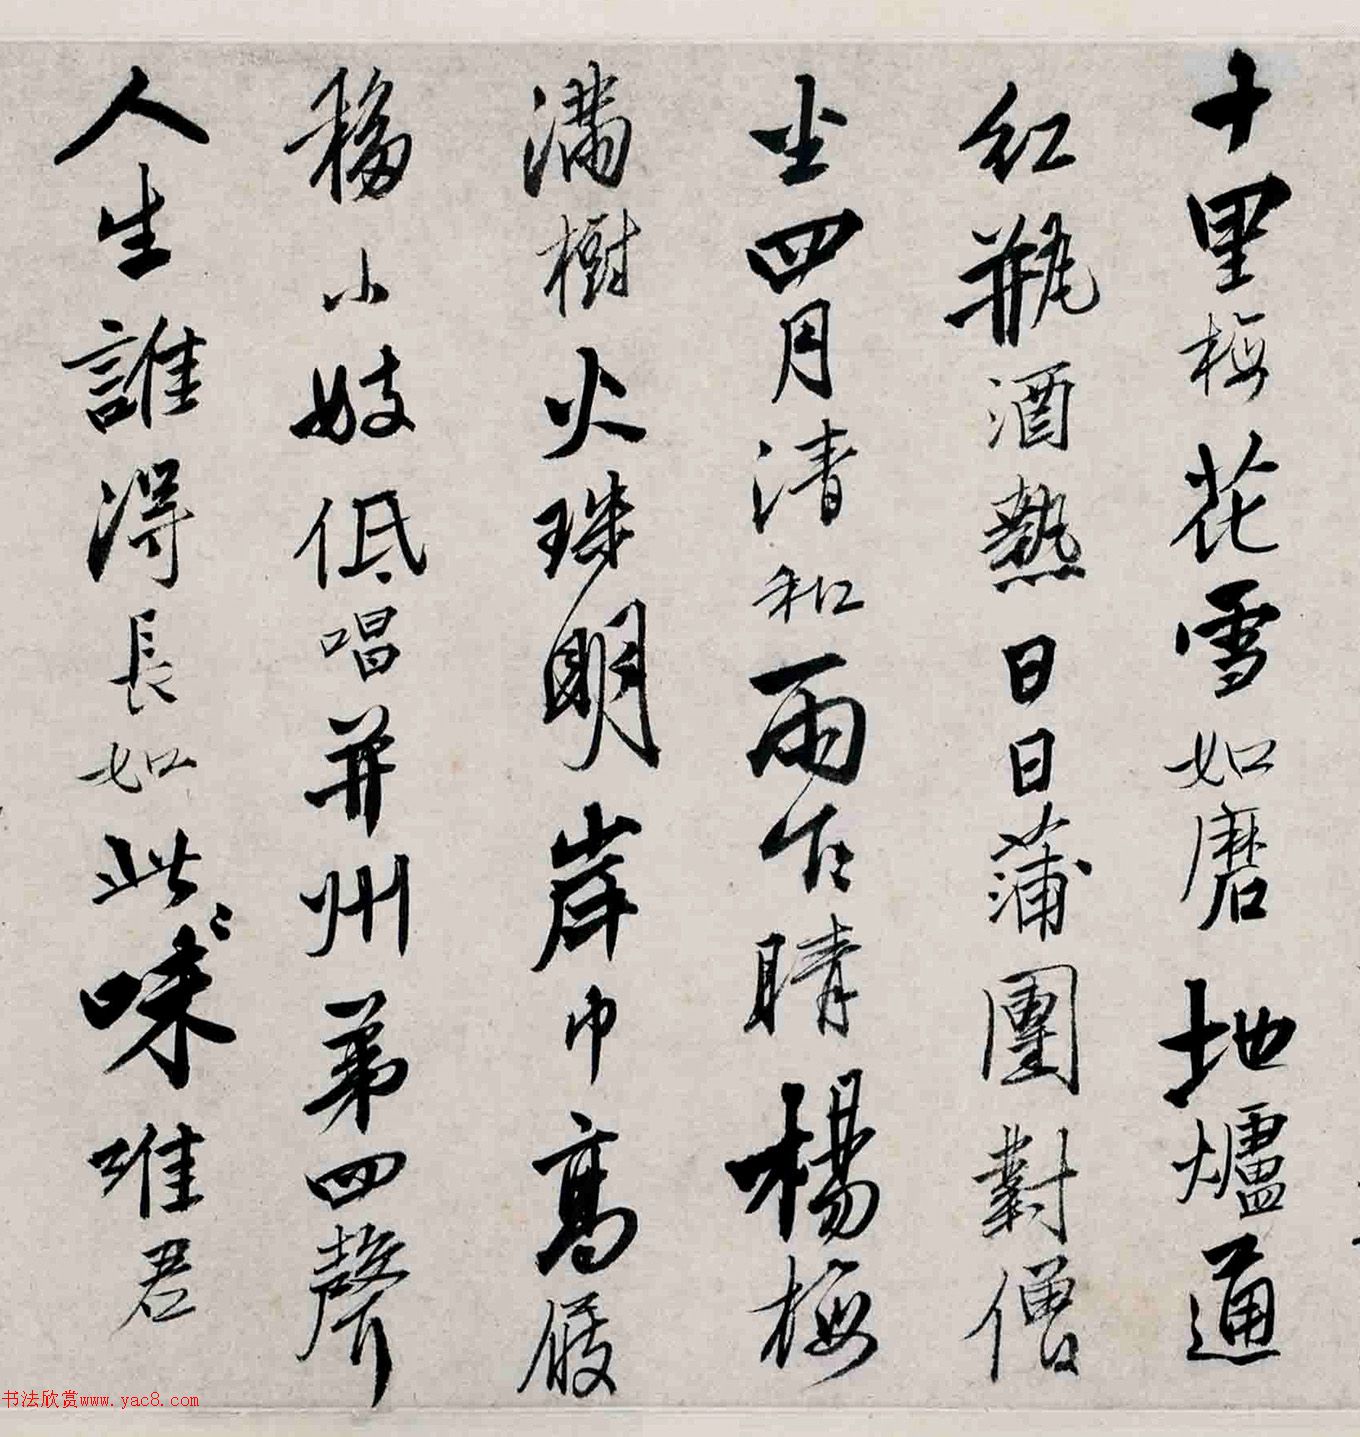 十里梅花雪如磨地爐通
紅瓶酒熱日日蒲團對僧
坐四月清和雨乍晴楊梅
滿樹火珠明岸巾高屐
移小妓低唱并州第四聲
人生誰得長如此〻味唯君
书法欣赏www.yac8.com